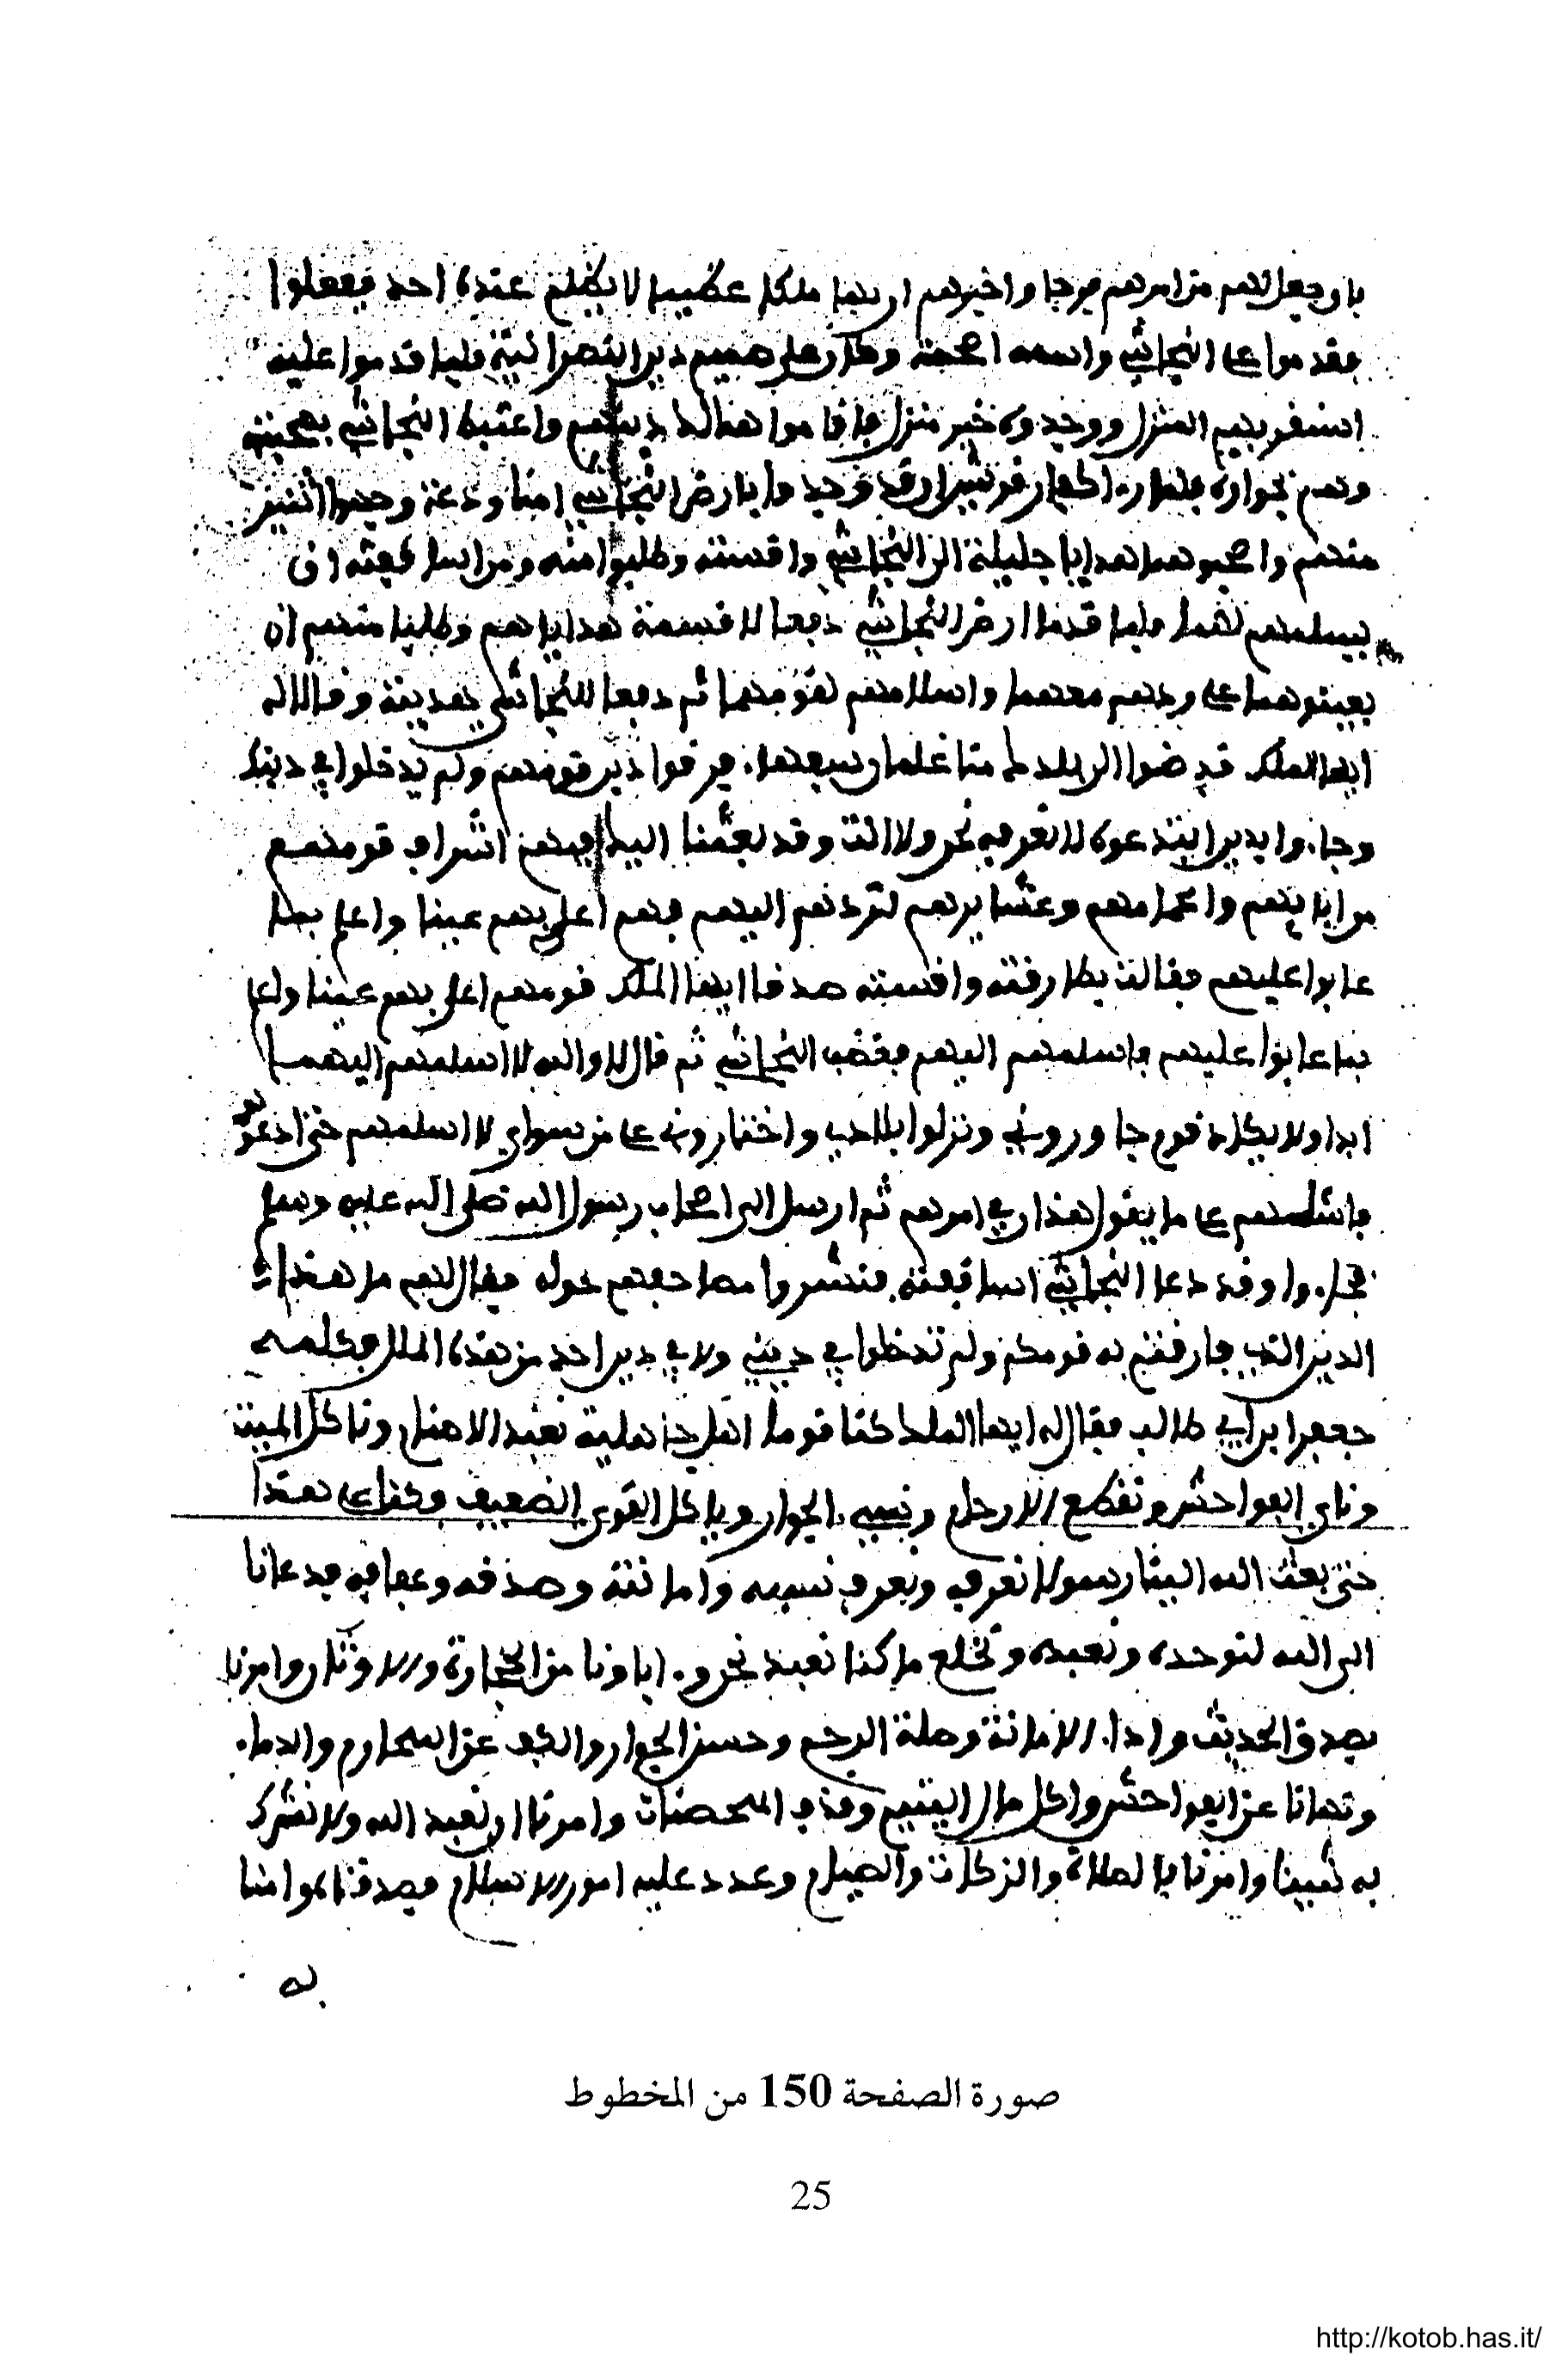 بان يجعل لهم من امرهم فرجا واخبرهم ان بها ملكا عظيما لا يظلم عنده احد ففعلوا
فقدموا على النجاشي واسمه اصحمة وكان على صميم دين النصرانية فلما قدموا عليه
استقر بهم المنزل ووجدوه خير منزل فاقاموا هنالك دينهم واغتبط النجاشي بصحبته
وهم بجواره فلما راء كفار قريش ان قد وجدوا بارض النجاشي امنا ودعة وجهوا اثنين
منهم واصحبوهما هدايا جليلة الى النجاشي واقسته وطلبوا منه ومن اساقفته ان
يسلمهم لهما فلما قدما ارض النجاشي دفعا لاقسسة هداياهم وطلبا منهم ان
يعينوهما على ردهم معهما واسلامهم لقومهما ثم دفعا للنجاشي هديته وقالا له
ايها الملك قد ضوا الى بلدك منا غلمان سفهاء فرقوا دين قومهم ولم يدخلوا في دينك
وجاءوا بدين ابتدعوه لا نعرفه نحن ولا انت وقد بعثنا اليك فيهم اشراف قومهم
من ابايهم واعمامهم وعشايرهم لتردهم اليهم فهم اعلى بهم عينا واعلم بما
عابوا عليهم فقالت بطارقته واقسته صدقا ايها الملك قومهم اعلى بهم عينا واعلم
بما عابوا عليهم فاسلمهم اليهم فغضب النجاشي ثم قال لا والله لا اسلمهم اليهما
ابدا ولا يكاد قوم جاوروني ونزلوا بلادي واختاروني على من سواي لا اسلمهم حتى ادعوهم
فاسئلهم على ما يقول هذان في امرهم ثم ارسل الى اصحاب رسول الله صلى الله عليه وسلم
فجاءوا وقد دعا النجاشي اساقفته فنشروا مصاحفهم حوله فقال لهم ما هذا
الدين الذي فارقتم به قومكم ولم تدخلوا في ديني ولا في دين احد من هذه الملل فكلمه
جعفر ابن ابي طالب فقال له ايها الملك كنا قوما اهل جاهلية نعبد الاصنام وناكل الميتة
وناتي الفواحش ونقطع الارحام ونسيء الجوار وياكل القوي الضعيف وكنا على هذا
حتى بعث الله الينا رسولا نعرفه ونعرف نسبه وامانته وصدقه وعفافه فدعانا
الى الله لنوحده ونعبده ونخلع ما كنا نعبد نحن وءاباونا من الحجارة والاوثان وامرنا
بصدق الحديث واداء الامانة وصلة الرحم وحسن الجوار والكف عن المحارم والدماء
ونهانا عن الفواحش واكل مال اليتيم وقذف المحصنات وامرنا ان نعبد الله ولا نشرك
به شيئا وامرنا بالصلاة والزكات والصيام وعدد عليه امور الاسلام فصدقناه وامنا
به
صورة الصفحة 150 من المخطوط
25
http://kotob.has.it/